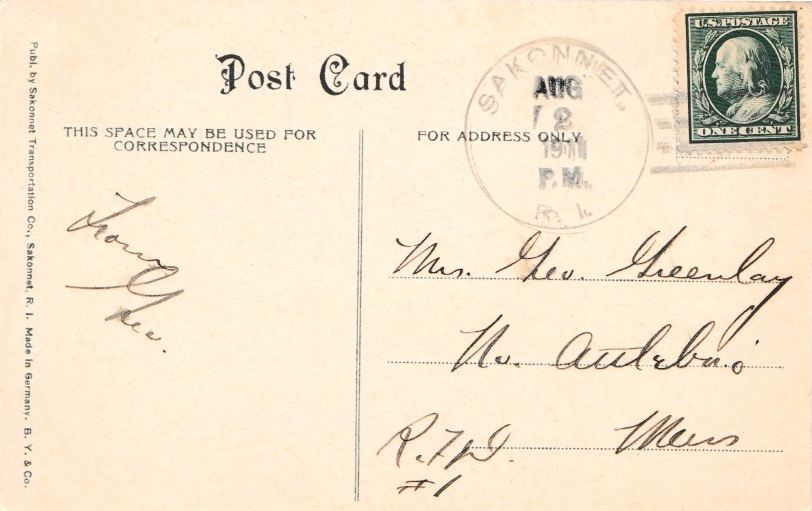 Post Card
THIS SPACE MAY BE USED FOR
CORRESPONDENCE
FOR ADDRESS ONLY
SAKONNET.
AUG
2
1911
P.M.
R. I.
U.S. POSTAGE
ONE CENT
From
Geo.
Mrs. Geo. Greenlay
No. Attleboro
Mass
R.F.D.
#1
Publ. by Sakonnet Transportation Co., Sakonnet, R. I. Made in Germany. B. Y. & Co.